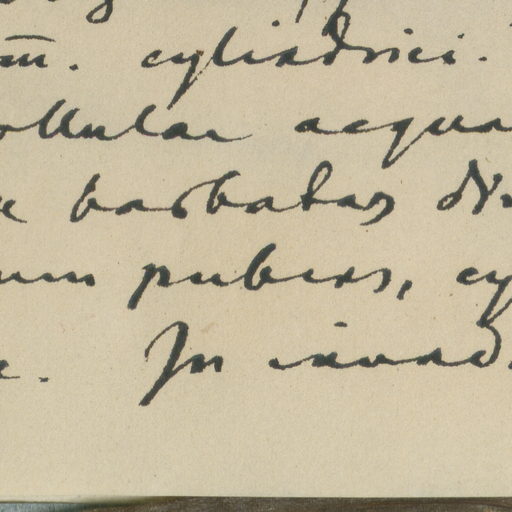 m̅. cylindrici.
ollulae aequa
e barbatas
um pubens, cy
e. In inund